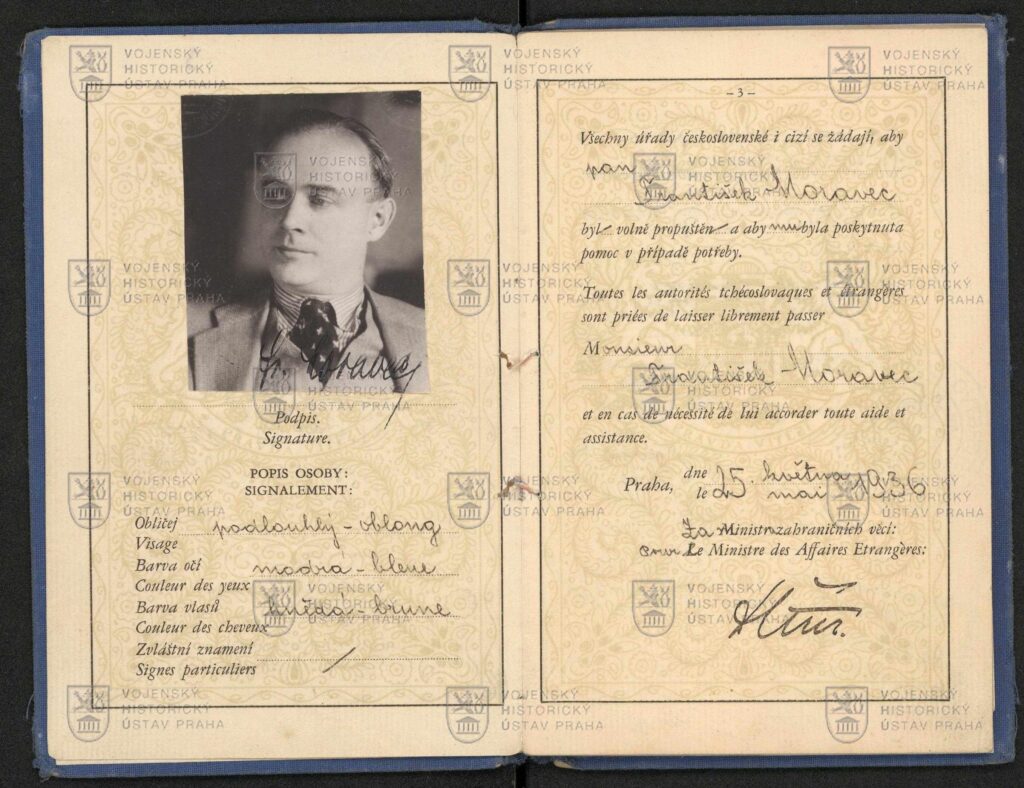 Fr. Moravec
Podpis.
Signature.
POPIS OSOBY:
SIGNALEMENT:
Obličej podlouhlý - oblong
Visage
Barva očí modrá - bleue
Couleur des yeux
Barva vlasů hnědá - brune
Couleur des cheveux
Zvláštní znamení
Signes particuliers
- 3 -
Všechny úřady československé i cizí se žádají, aby
pan
František Moravec
byl volně propuštěn a aby mu byla poskytnuta
pomoc v případě potřeby.
Toutes les autorités tchécoslovaques et étrangères
sont priées de laisser librement passer
Monsieur
František Moravec
et en cas de nécessité de lui accorder toute aide et
assistance.
Praha, dne 25. května 1936
le mai
Za Ministra zahraničních věcí:
Pour Le Ministre des Affaires Etrangères:
VOJENSKÝ
HISTORICKÝ
ÚSTAV PRAHA